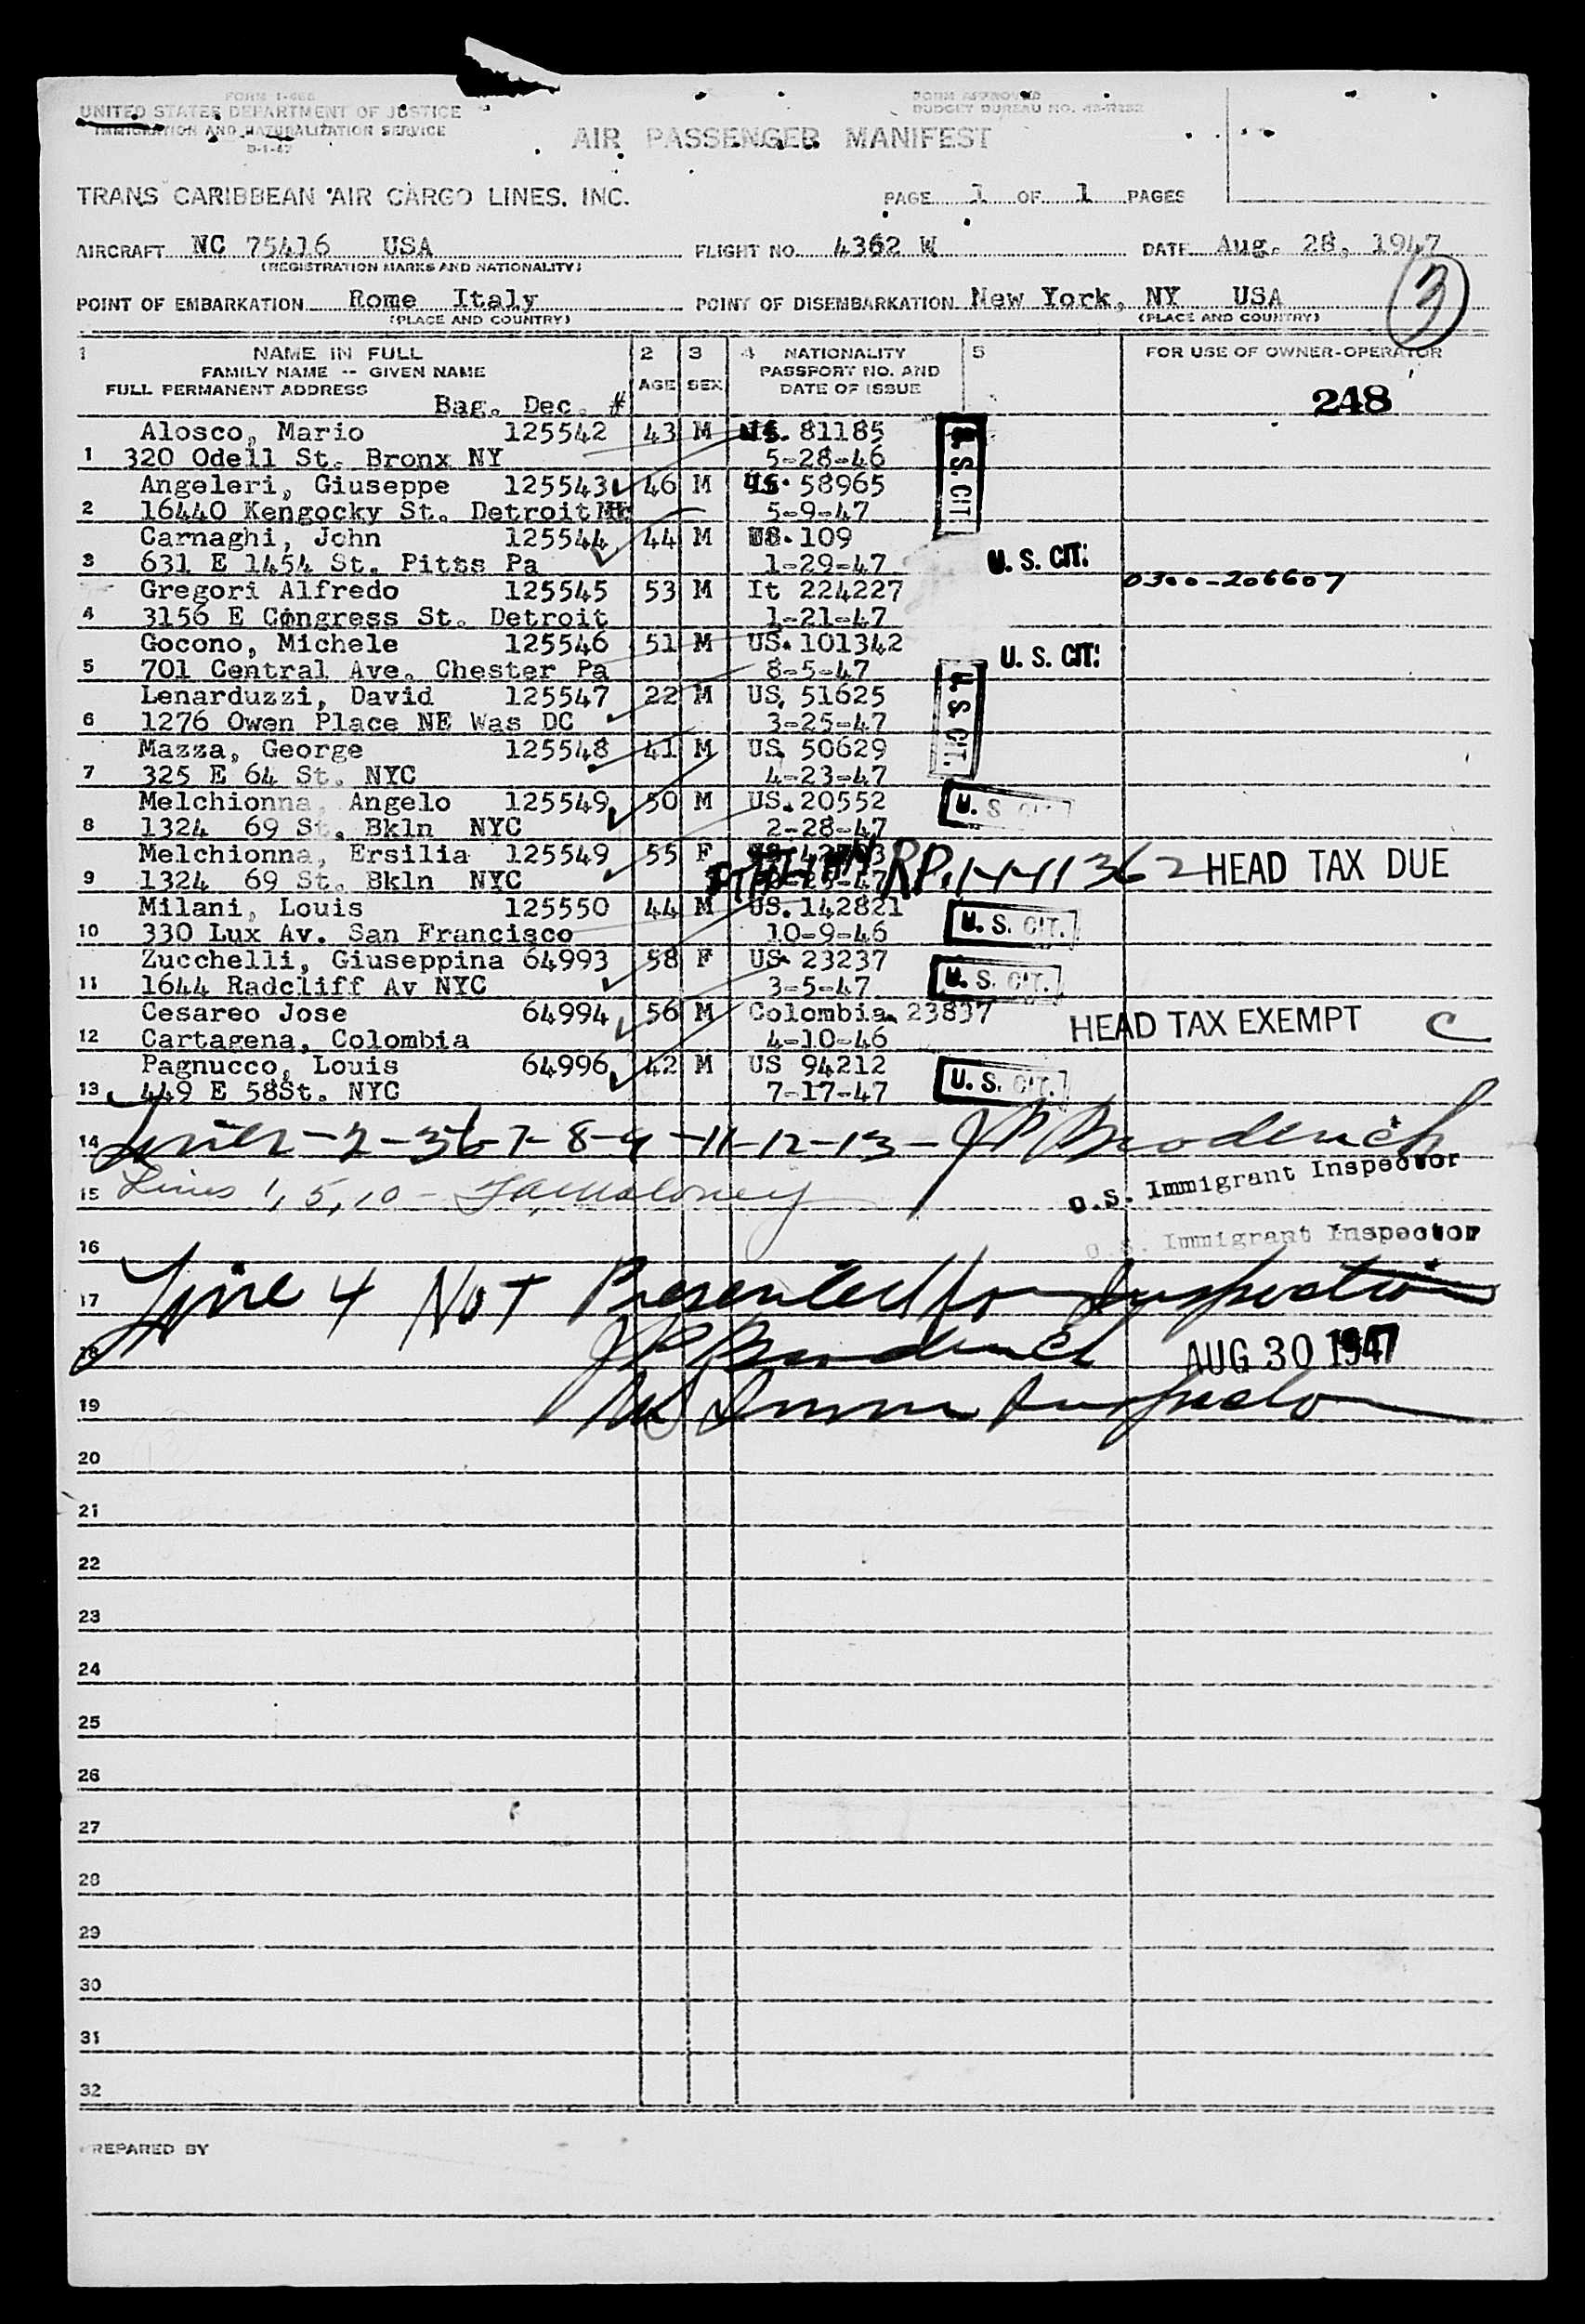 FORM I-466
UNITED STATES DEPARTMENT OF JUSTICE
IMMIGRATION AND NATURALIZATION SERVICE
FORM APPROVED
BUDGET BUREAU NO.
AIR PASSENGER MANIFEST
TRANS CARIBBEAN AIR CARGO LINES, INC.
PAGE 1 OF 1 PAGES
AIRCRAFT NC 75416 USA FLIGHT NO. 4362 W DATE Aug. 28, 1947
(REGISTRATION MARKS AND NATIONALITY)
3
POINT OF EMBARKATION Rome Italy POINT OF DISEMBARKATION New York, NY USA
(PLACE AND COUNTRY) (PLACE AND COUNTRY)
1 NAME IN FULL 2 3 4 NATIONALITY 5 FOR USE OF OWNER-OPERATOR
FAMILY NAME -- GIVEN NAME PASSPORT NO. AND
FULL PERMANENT ADDRESS AGE SEX DATE OF ISSUE
Bag. Dec. # 248
Alosco, Mario 125542 43 M US. 81185
1 320 Odell St. Bronx NY 5-28-46 U. S. CIT.
Angeleri, Giuseppe 125543 46 M US. 58965
2 16440 Kengocky St. Detroit 5-9-47
Carnaghi, John 125544 44 M US. 109
3 631 E 1454 St. Pitts Pa 1-29-47 U. S. CIT.
Gregori Alfredo 125545 53 M It 224227 0300-206607
4 3156 E Congress St. Detroit 1-21-47
Gocono, Michele 125546 51 M US. 101342
5 701 Central Ave. Chester Pa 8-5-47 U. S. CIT.
Lenarduzzi, David 125547 22 M US. 51625
6 1276 Owen Place NE Was DC 3-25-47 U. S. CIT.
Mazza, George 125548 41 M US. 50629
7 325 E 64 St. NYC 4-23-47
Melchionna, Angelo 125549 50 M US. 20552 U. S. CIT.
8 1324 69 St. Bkln NYC 2-28-47
Melchionna, Ersilia 125549 55 F RP. 1441362 HEAD TAX DUE
9 1324 69 St. Bkln NYC
Milani, Louis 125550 44 M US. 142821
10 330 Lux Av. San Francisco 10-9-46 U. S. CIT.
Zucchelli, Giuseppina 64993 58 F US. 23237
11 1644 Radcliff Av NYC 3-5-47 U. S. CIT.
Cesareo Jose 64994 56 M Colombia. 23837
12 Cartagena, Colombia 4-10-46 HEAD TAX EXEMPT C
Pagnucco, Louis 64996 42 M US 94212
13 449 E 58St. NYC 7-17-47 U. S. CIT.
14 Lines - 2 - 3 6 - 7 - 8 - 9 - 11 - 12 - 13 - J P Broderick
U.S. Immigrant Inspector
15 Lines 1, 5, 10 -
16 U.S. Immigrant Inspector
17 Line 4 Not Presented for Inspection
18 J P Broderick AUG 30 1947
19 US Immn Inspector
20
21
22
23
24
25
26
27
28
29
30
31
32
PREPARED BY